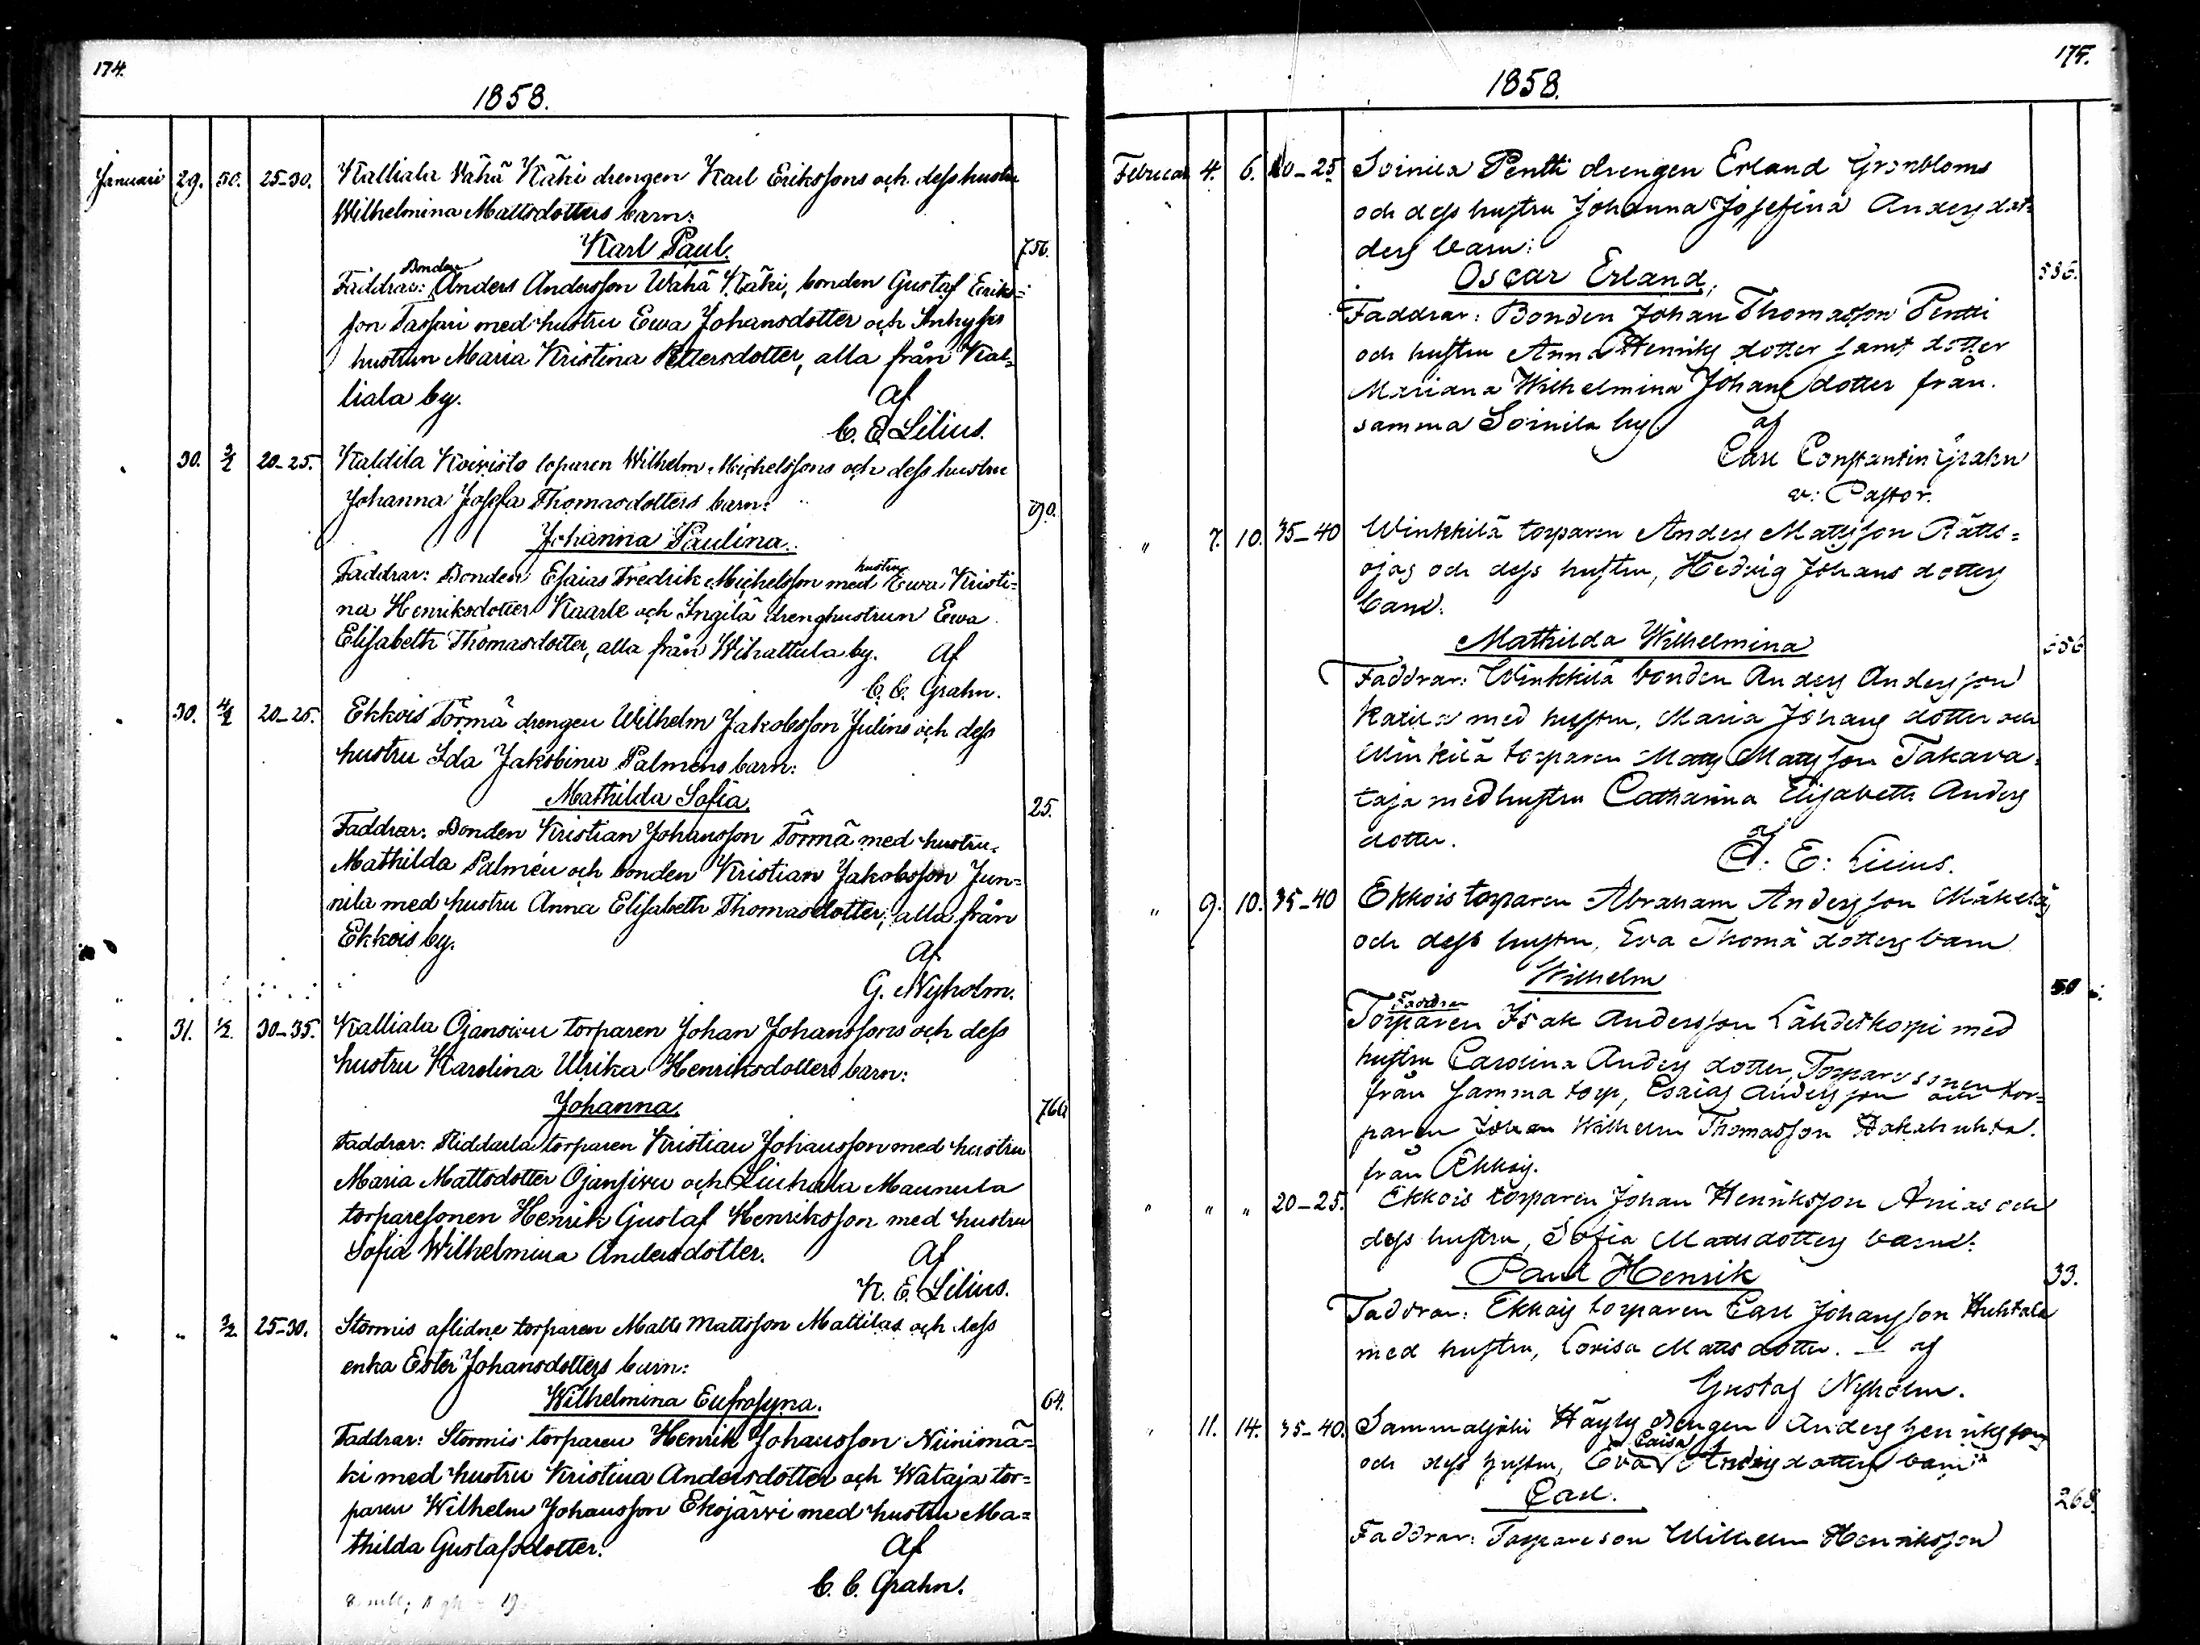 174.
1858.
Januari 29. 30. 25-30. Kalliala Vähä Käki drengen Karl Erikssons och dess hustru
Wilhelmina Mattsdotters barn:
Karl Paul. 756.
Bonden
Faddrar: Anders Andersson Wähä Käki, bonden Gustaf Eriks=
son Tassari med hustru Ewa Johansdotter och Inhyses
hustrun Maria Kristina Pettersdotter, alla från Kal=
liala by. Af
C. E. Lilius.
" 30. 3/2 20-25. Kaldila Koivisto toparen Wilhelm Michelssons och dess hustru
Johanna Josefa Thomasdotters barn: 90.
Johanna Paulina.
hustru
Faddrar: Bonden Esaias Fredrik Michelsson med Ewa Kristi=
na Henriksdotter Kaarle och Ingilä drenghustrun Ewa
Elisabeth Thomasdotter, alla från Wihattula by. Af
C. C. Grahn.
" 30. 4/2 20-25. Ekkois Törmä drengen Wilhelm Jakobsson Julins och dess
hustru Ida Jakobina Palmens barn:
Mathilda Sofia. 25.
Faddrar: Bonden Kristian Johansson Törmä med hustru
Mathilda Palmén och bonden Kristian Jakobsson Jun=
nila med hustru Anna Elisabeth Thomasdotter, alla från
Ekkois by. Af
G. Nyholm.
" 31. 1/2. 30-35. Kalliala Ojansivu torparen Johan Johanssons och dess
hustru Karolina Ulrika Henriksdotters barn:
Johanna. 766
Faddrar: Riddarla torparen Kristian Johansson med hustru
Maria Mattsdotter Ojansivu och Liuhala Maunula
torparesonen Henrik Gustaf Henriksson med hustru
Sofia Wilhelmina Andersdotter. Af
K. E. Lilius.
" " 3/2 25-30. Stormis aflidne torparen Matts Mattsson Mattilas och dess
enka Ester Johansdotters barn:
Wilhelmina Eufrosyna. 64.
Faddrar: Stormis torparen Henrik Johansson Niinimä=
ki med hustru Kristina Andersdotter och Wataja tor=
paren Wilhelm Johansson Ekojärvi med hustru Ma=
thilda Gustafsdotter. Af
C. C. Grahn.
175.
1858.
Februari 4. 6. 20-25 Soinila Pentti drengen Erland Grönbloms
och dess hustru Johanna Josefina Anders dot=
ders barn:
Oscar Erland, 536.
Faddrar: Bonden Johan Thomasson Pentti
och hustru Anna Henriks dotter samt dotter
Mariana Wilhelmina Johans dotter från
samma Soinila by af
Carl Constantin Grahn
v: Pastor.
" 7. 10. 35-40 Winkkilä torparen Anders Mattsson Rätts=
ojas och dess hustru, Hedvig Johans dotters
barn.
Mathilda Wilhelmina 656
Faddrar: Winkkilä bonden Anders Andersson
Katila med hustru, Maria Johans dotter och
Winkilä torparen Matts Mattsson Takava=
taja med hustru Catharina Elisabeth Anders
dotter. af
C. E: Lilius.
" 9. 10. 35-40 Ekkois torparen Abraham Andersson Mäkelä,
och dess hustru, Eva Thomä dotters barn
Wilhelm 50
Faddrar
Torparen Isak Andersson Lähdekorpi med
hustru Carolina Anders dotter, Torpare sonen
från samma torp, Esaias Andersson och tor=
paren Johan Wilhelm Thomasson Hakahuhta.
från Ekkois.
" " " 20-25. Ekkois torparen Johan Henriksson Anias och
dess hustru, Sofia Mattsdotters barn:
Paul Henrik 33.
Faddrar: Ekkois torparen Carl Johansson Huhtala
med hustru, Lovisa Matts dotter. — af
Gustaf Nyholm.
" 11. 14. 35-40. Sammaljoki Häyly drengen Anders Henrikssons
Caisa
och dess hustru, Eva Andersdotters barn
Carl. 268.
Faddrar: Torpareson Wilhelm Henriksson